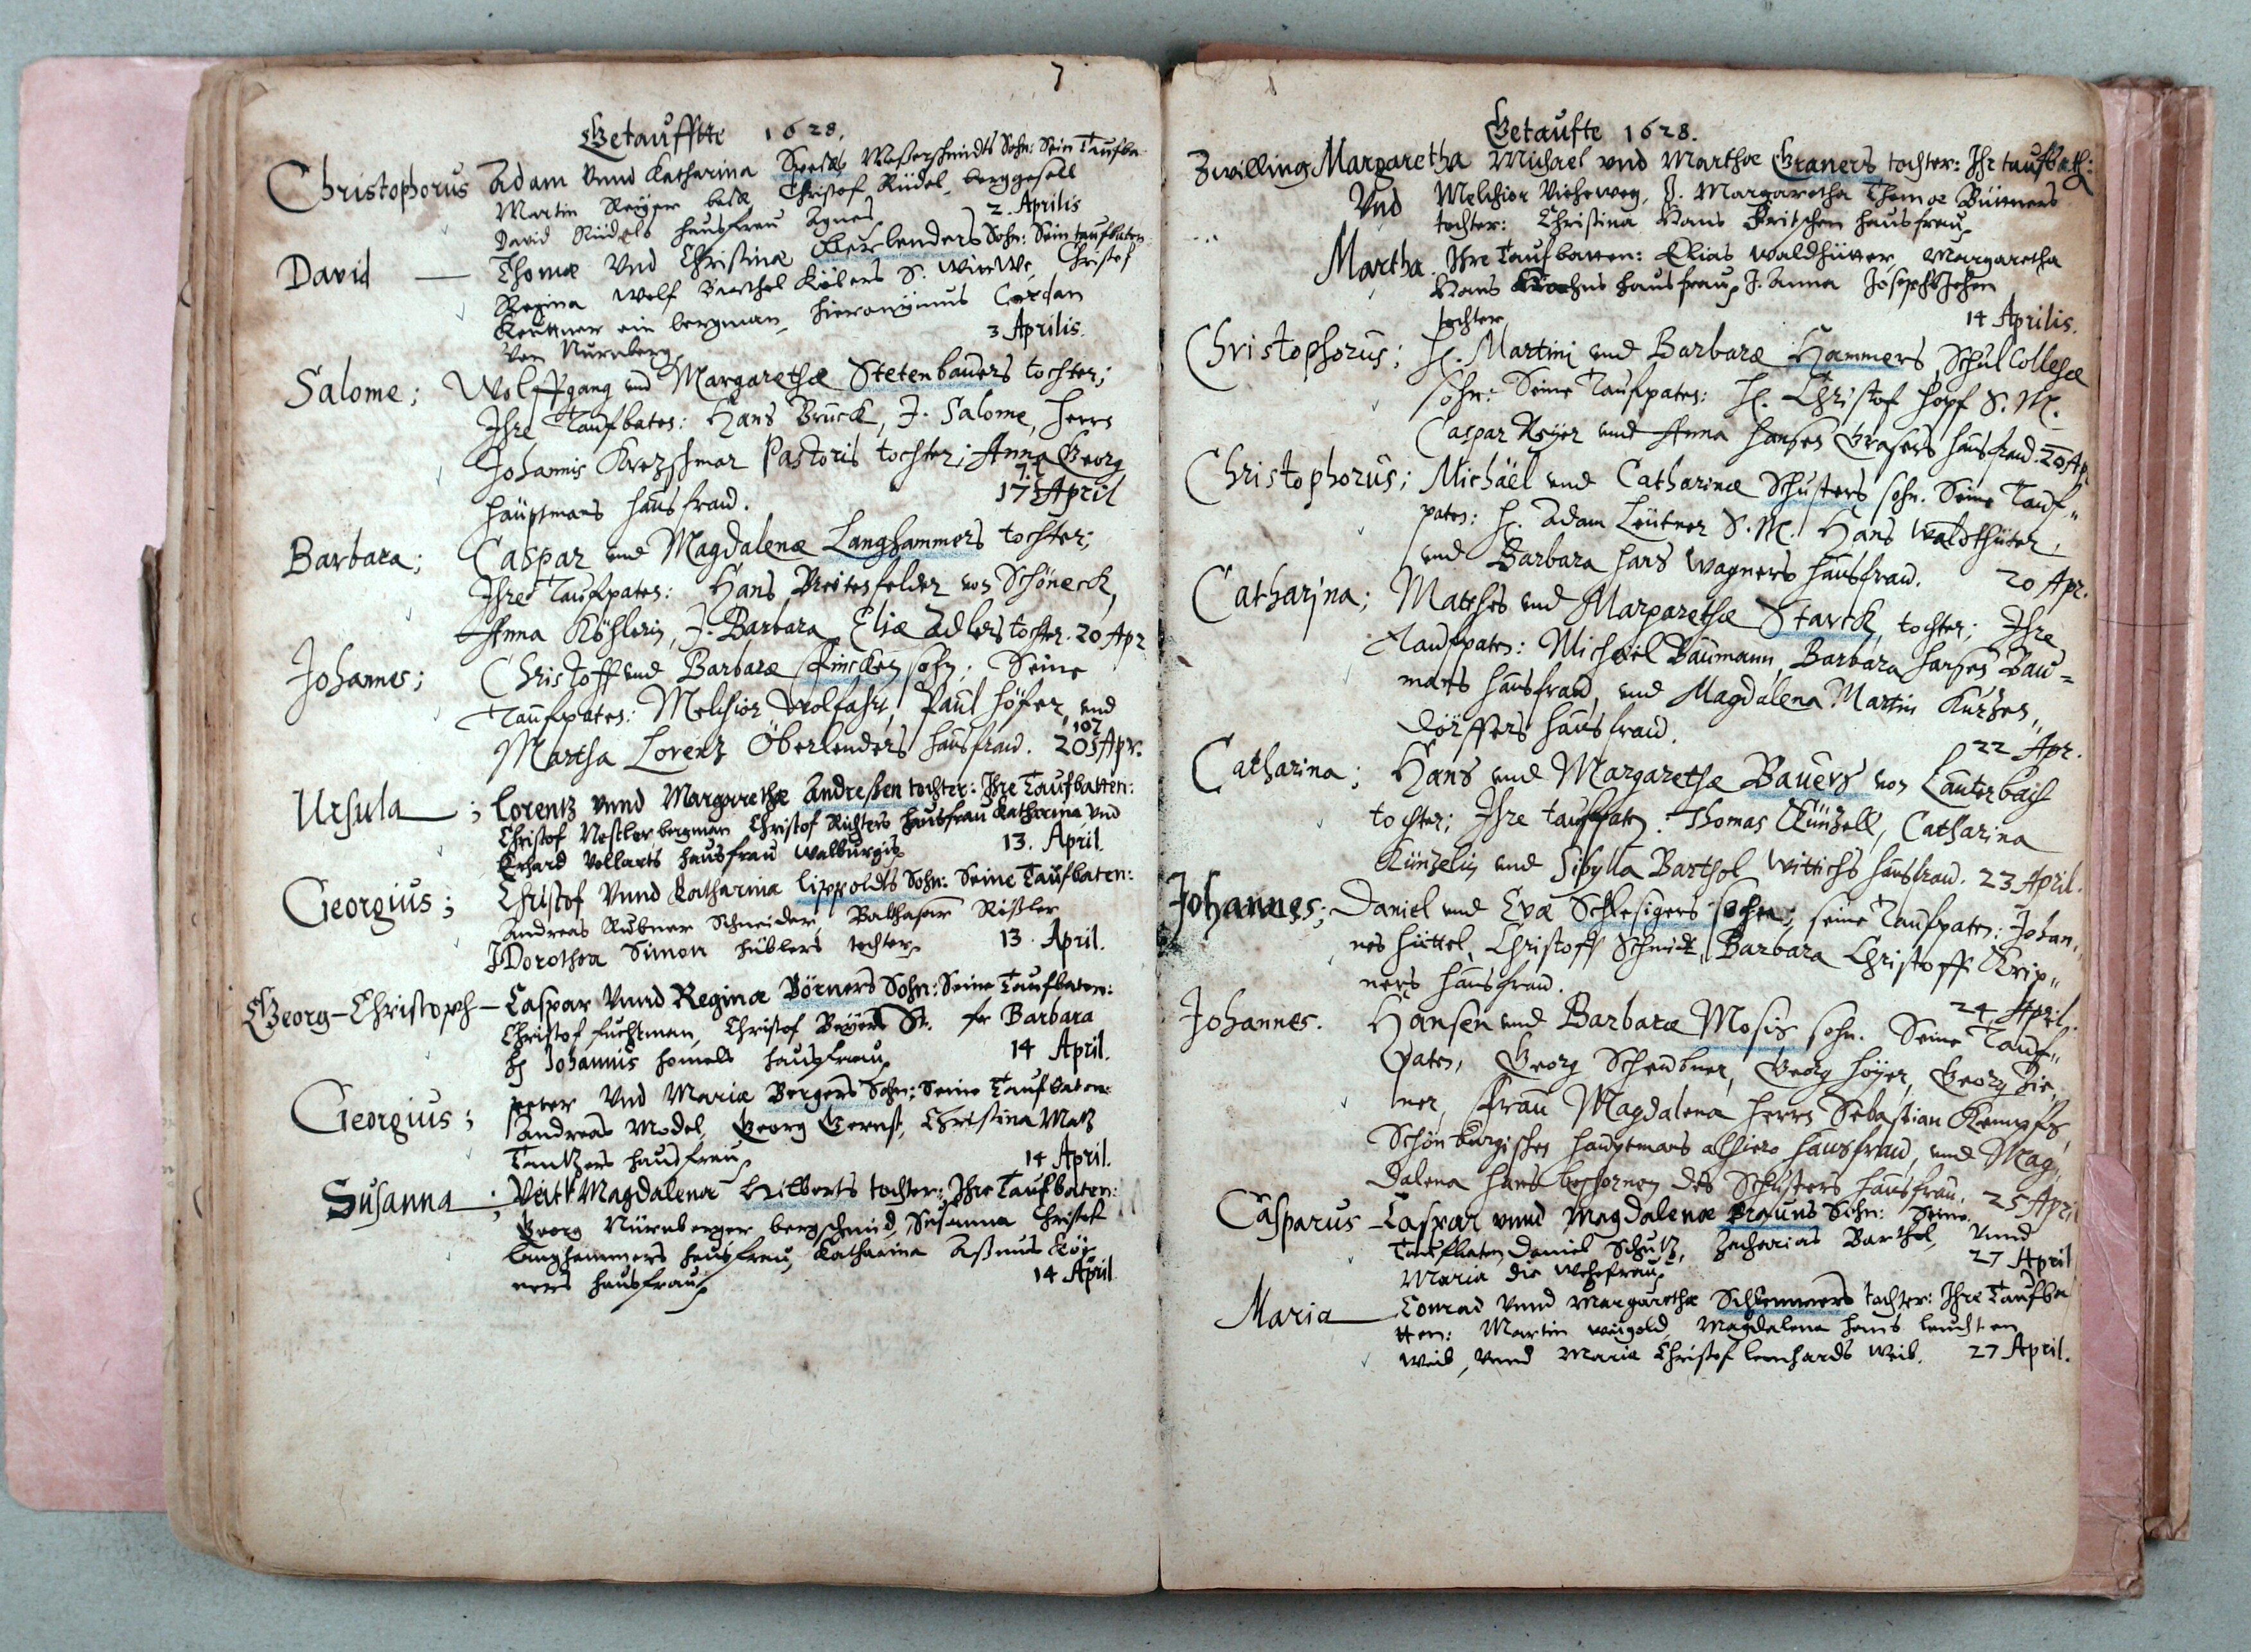 7
Getaufftte 1628.
Christophorus Adam vnnd Katharina Specks Meßerschmidts Sohn: Sein Taufba
Martin Reyer beck Christof Rüdel, berggesell
David Rüdels hausfrau Agnes 2. Aprilis
David — Thomæ vnd Christinæ Oberlenders Sohn: Sein taufbaten
Regina Wolf Barthel Kölers S. Witwe, Christof
Keuttner ein bergman, hieronymus Cordan
Von Nurnberg. 3 Aprilis.
Salome; Wolffgang vnd Margarethæ Stetenbauers tochter;
Ihre Taufbaten: Hans Bruck, J. Salome, herrn
Johannis Kretzschmar Pastoris tochter; Anna Georg
häuptmans hausfrau. 17 April
Barbara; Caspar vnd Magdalenæ Langhammers tochter;
Ihre Taufpaten: Hans Breitenfelder von Schöneck,
Anna Köhlerin, J. Barbara Eliæ Adlers tochter. 20 Apr
Johannes; Christoff vnd Barbaræ Fincken sohn; Seine
Taufpaten: Melchior Wolfahrt, Paul Höfer, vnd
Martha Lorentz Öberlenders hausfrau. 20 Apr.
Ursula ; Lorentz vnnd Margarethæ Andreßen tochter: Ihre Taufbatten:
Christof Nestler bergman Christof Richters hausfrau Katharina vnd
Erhard Vollarts hausfrau Walburgis 13. April.
Georgius; Christof vnnd Katharina Lippoldts Sohn: Seine Taufbaten:
Andreas Rubner Schneider, Balthasar Rißler
J Dorothea Simon hüblers tochter 13. April.
Georg-Christoph — Caspar vnnd Reginæ Börners Sohn: Seine Taufbaten:
Christof Fuchtman, Christof Beyers St. fr Barbara
H Johannis homels hausfrau 14 April.
Georgius; peter vnd Mariæ Bergers Sohn: Seine Taufbaten:
Andreas Model, Georg Gernst, Christina Matz
Tantzers hausfrau 14 April.
Susanna ; Veitt Magdalenæ Hilberts tochter: Ihre Taufbaten:
Georg Nürnberger bergschmid, Susanna Christof
langhammers hausfrau Katharina Aßmus Köj
ners hausfrau 14 April
Getaufte 1628.
Zwilling Margaretha Michael vnd Marthæ Graners tochter: Ihr taufbath:
Vnd Melchior Vieheweg, J. Margaretha Thomæ Büttners
tochter: Christina Hans Fritschen hausfrau
Martha. Ihre Taufbatten: Elias Waldhütter, Margaretha
Hans hausfrau J. Anna Joseph
tochter 14 Aprilis.
Christophorus; H. Martini vnd Barbaræ Hammers, Schul Collegæ
sohn: Seine Taufpaten: H. Christof Hopf S. M.
Caspar Reyer vnd Anna Hansen Grasers hausfrau. 20 Ap
Christophorus; Michäel vnd Catharinæ Schusters sohn. Seine Tauf„
paten: H. Adam Leütner S. M. Hans Waldthüter,
vnd Barbara Hans Wagners hausfrau. 20 Apr.
Catharina; Matthes vnd Margarethæ Starck, tochter; Ihre
Taufpaten: Michäel Baumann, Barbara Hansen Bau=
mans hausfrau, vnd Magdalena Martin Kürtzen„
dörffers hausfrau. 22 Apr.
Catharina; Hans vnd Margarethæ Bauers von Lauterbach
tochter; Ihre taufpaten: Thomas Künzell, Catharina
Künzelin vnd Sibylla Barthol Wittichs hausfrau. 23 April.
Johannes; Daniel vnd Evæ Schlesigers sohn; seine Taufpaten: Johan„
nes Hüttel, Christoff Schmidt, Barbara Christoff Krip„
ners hausfrau. 24 April.
Johannes. Hansen vnd Barbaræ Mosis sohn. Seine Tauf„
paten, Georg Scheubner, Georg Höyer, Georg Zie„
ner, Frau Magdalena herrn Sebastian Kempfs,
Schönburgischen hauptmans alhiero hausfrau, vnd Mag„
dalena Hans beschornen des Schusters hausfrau. 25 April
Casparus — Caspar vnnd Magdalenæ Brauns Sohn: Seine
Taufbaten Daniel Schultz, Zacharias Barthel, vnnd
Maria die Wehefrau 27 April
Maria — Conrad vnnd Margarethæ Schlemmers tochter: Ihre Taufba
tten: Martin weigold Magdalena hans leuchten
Weib, vnnd Maria Christof lenhards Weib. 27 April.